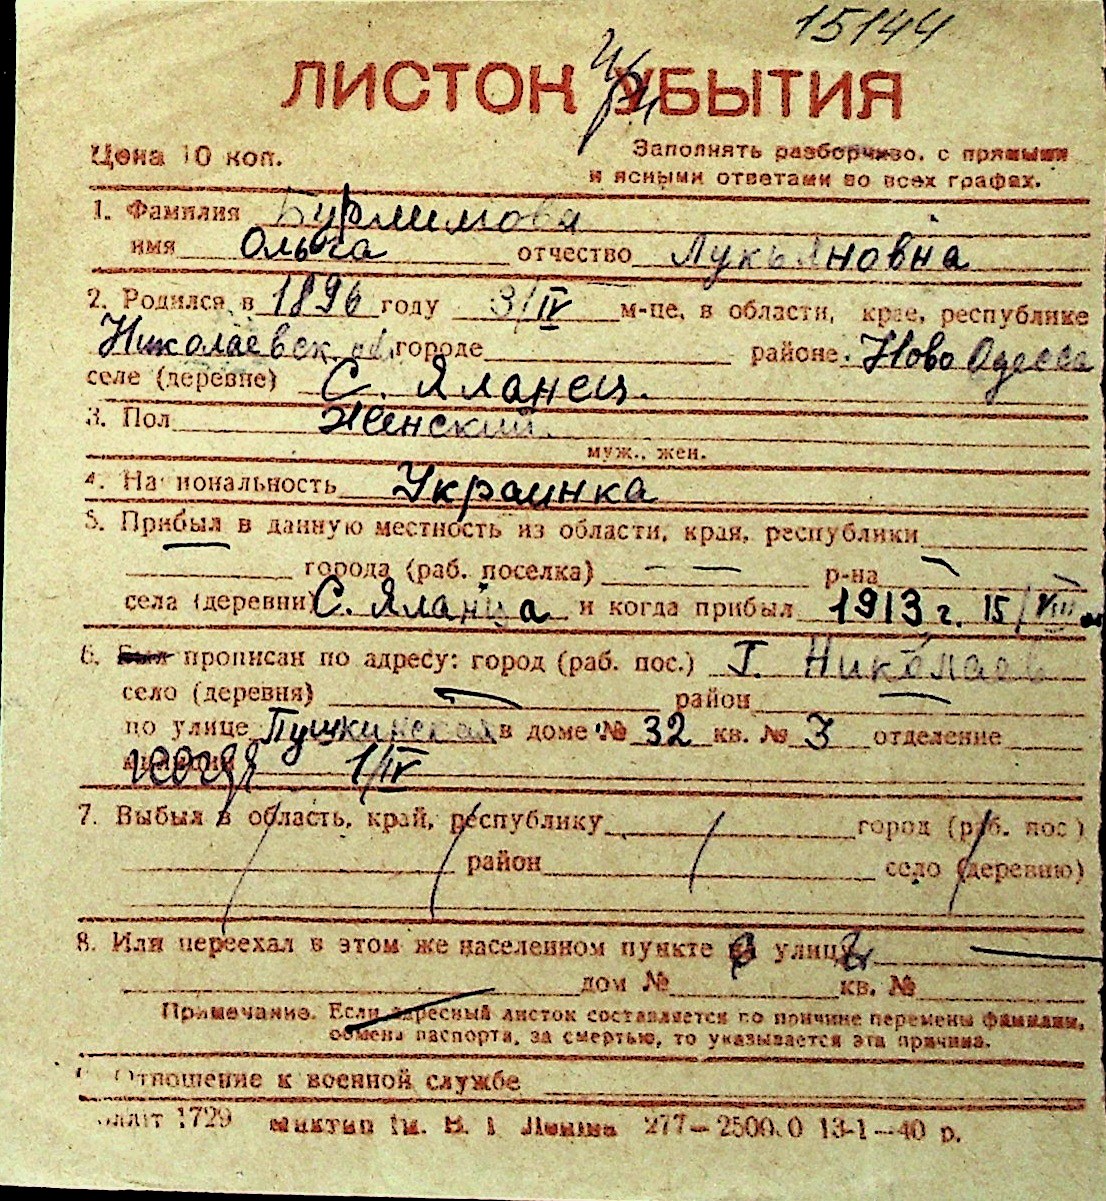 15144
ЛИСТОК УБЫТИЯ
Цена 10 коп.
Заполнять разборчиво, с прямыми
и ясными ответами во всех графах.
1. Фамилия Бурлимова
имя Ольга отчество Лукьяновна
2. Родился в 1896 году 3/IV м-це, в области, крае, республике
Николаевск обл. городе районе Ново Одесса
селе (деревне) С. Яланец.
3. Пол Женский
муж., жен.
4. Национальность Украинка
5. Прибыл в данную местность из области, края, республики
города (раб. поселка) — — р-на —
села (деревни) С. Яланца и когда прибыл 1913 г. 15/VIII
6. Был прописан по адресу: город (раб. пос.) Г. Николаев
село (деревня) — район —
по улице Пушкинская в доме № 32 кв. № 3 отделение
милиции 1/IV
7. Выбыл в область, край, республику город (раб. пос.)
район село (деревню)
8. Или переехал в этом же населенном пункте на улицу —
дом № кв. №
Примечание. Если адресный листок составляется по причине перемены фамилии,
обмена паспорта, за смертью, то указывается эта причина.
Отношение к военной службе
1729 ім. В. І. Леніна 277—2500.0 13-1—40 р.